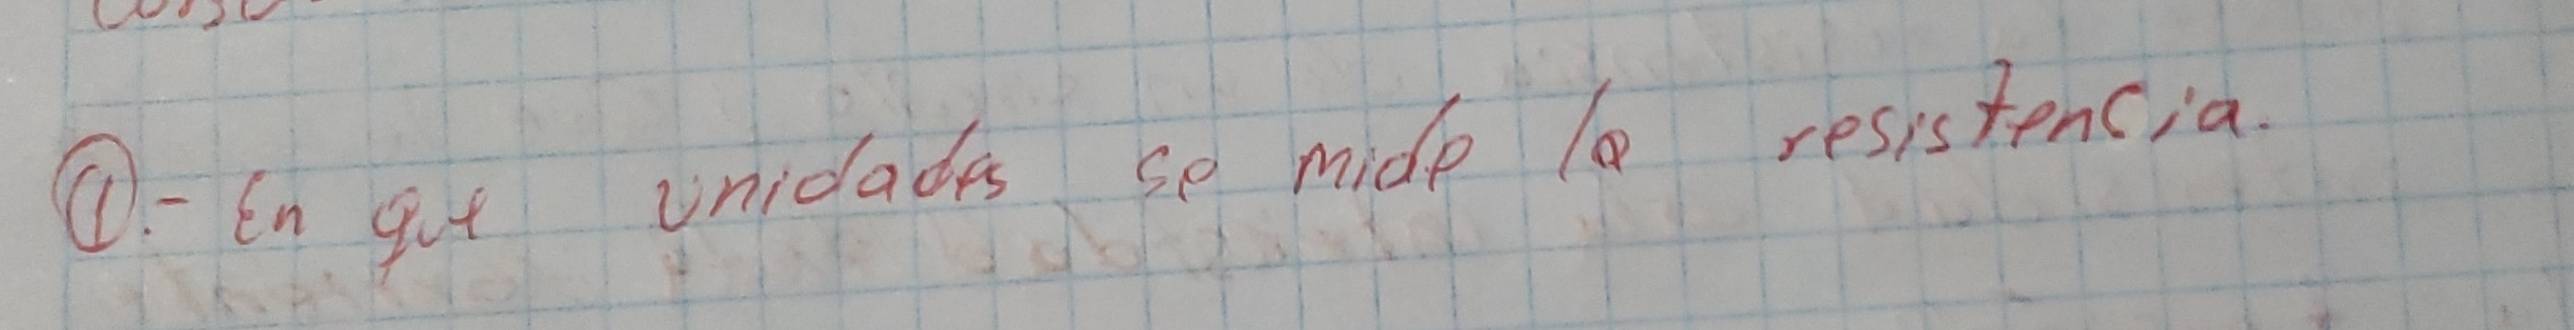 ①.- En que unidades se mide la resistencia.